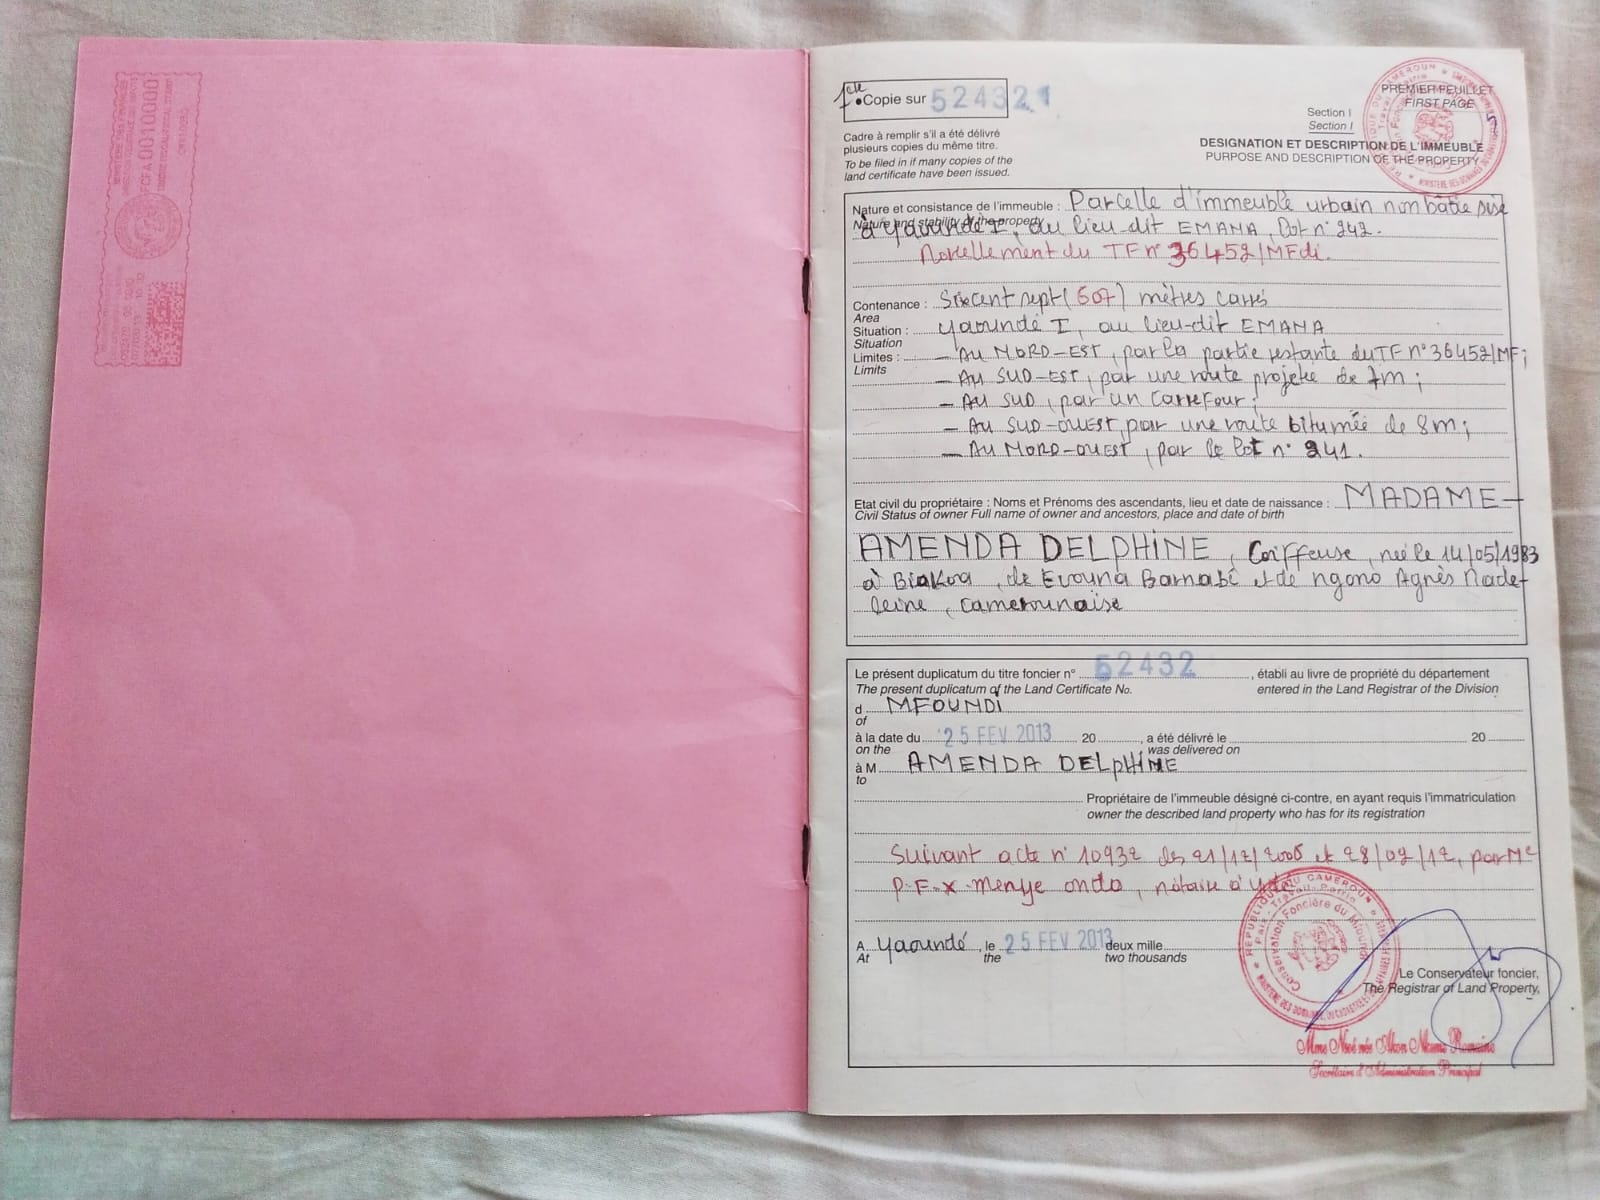 FCFA 0010000
1ère Copie sur 52432
PREMIER FEUILLET
FIRST PAGE
Section I
Section I
Cadre à remplir s'il a été délivré
plusieurs copies du même titre.
To be filed in if many copies of the
land certificate have been issued.
DESIGNATION ET DESCRIPTION DE L'IMMEUBLE
PURPOSE AND DESCRIPTION OF THE PROPERTY
Nature et consistance de l'immeuble : Parcelle d'immeuble urbain non bâtie sise
Nature and stability of the property
à Yaoundé I, au lieu-dit EMANA, Lot n° 242.
Morcellement du TF n° 36452/MFdi.
Contenance : Six cent sept (607) mètres carrés
Area
Situation : Yaoundé I, au lieu-dit EMANA
Situation
Limites : - AU NORD-EST, par la partie restante du TF n° 36452/MF;
Limits
- AU SUD-EST, par une route projetée de 7m;
- AU SUD, par un Carrefour;
- AU SUD-OUEST, par une route bitumée de 8m;
- AU NORD-OUEST, par le lot n° 241.
Etat civil du propriétaire : Noms et Prénoms des ascendants, lieu et date de naissance : MADAME
Civil Status of owner Full name of owner and ancestors, place and date of birth
AMENDA DELPHINE, Coiffeuse, née le 14/05/1983
à Biakoa, de Evouna Barnabé et de ngono Agnès Made-
leine, camerounaise
Le présent duplicatum du titre foncier n° 52432, établi au livre de propriété du département
The present duplicatum of the Land Certificate No. entered in the Land Registrar of the Division
d MFOUNDI
of
à la date du 25 FEV 2013 20 , a été délivré le 20
on the was delivered on
à M AMENDA DELPHINE
to
Propriétaire de l'immeuble désigné ci-contre, en ayant requis l'immatriculation
owner the described land property who has for its registration
Suivant acte n° 10932 des 21/12/2005 et 28/02/12, par Me
P.F.X. Menye ondo, notaire à Ydé
A Yaoundé, le 25 FEV 2013 deux mille
At the two thousands
Le Conservateur foncier,
The Registrar of Land Property,
REPUBLIQUE DU CAMEROUN
Paix - Travail - Patrie
Conservation Foncière du Mfoundi
Secrétaire d'Administration Principal